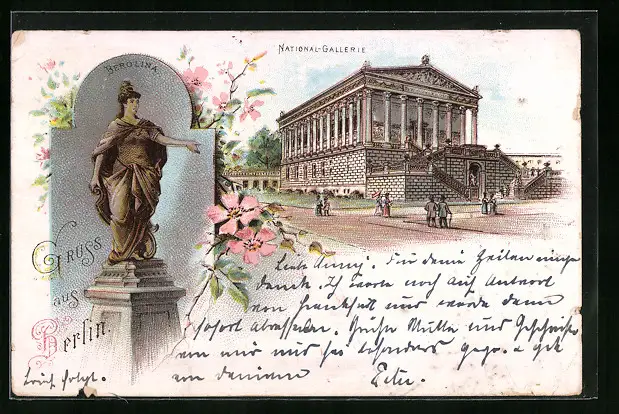 NATIONAL-GALLERIE
BEROLINA.
GRUSS
aus
Berlin.
Liebe Anny! Für deine Zeilen innigen
Dank. Ich warte noch auf Antwort
von Frankfurt und werde dann
sofort abreisen. Grüße Mutter und Geschwister
von mir und sei besonders gegr. u. gek
von deinem
Brief folgt.